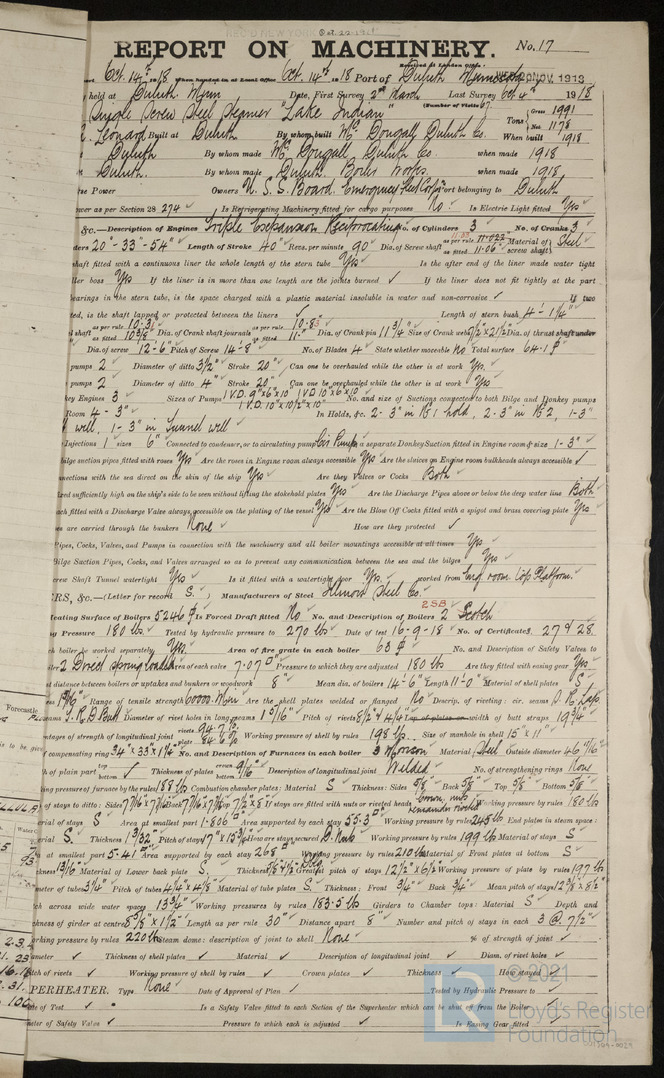 Oct. 22. 1918
REPORT ON MACHINERY. No. 17
Received at London Office
port Oct. 14th 1918 When handed in at Local Office Oct. 14th 1918 Port of Duluth Minnesota WED. 20 NOV. 1918
held at Duluth Minn Date, First Survey 2nd March Last Survey Oct 4th 1918
Single Screw Steel Steamer "Lake Indian" (Number of Visits 67) Tons Gross 1991 Net 1178
Leonard Built at Duluth By whom built McDougall Duluth Co. When built 1918
Duluth By whom made McDougall Duluth Co. when made 1918
Duluth. By whom made Duluth Boiler Works. when made 1918
se Power Owners U. S. S. Board. Emergency Fleet Corps. Port belonging to Duluth
wer as per Section 28 274 Is Refrigerating Machinery fitted for cargo purposes No. Is Electric Light fitted Yes
&c.—Description of Engines Triple Expansion Reciprocating No. of Cylinders 3 No. of Cranks 3
ders 20"-33"-54" Length of Stroke 40" Revs. per minute 90 Dia. of Screw shaft as per rule 11.022" as fitted 11.06" Material of screw shaft Steel
shaft fitted with a continuous liner the whole length of the stern tube Yes Is the after end of the liner made water tight
ller boss Yes If the liner is in more than one length are the joints burned ✓ If the liner does not fit tightly at the part
bearings in the stern tube, is the space charged with a plastic material insoluble in water and non-corrosive ✓ If two
ted, is the shaft lapped or protected between the liners ✓ Length of stern bush 4'-1¼"
l shaft as per rule 10.31" as fitted 10⅜" Dia. of Crank shaft journals as per rule 10.83" as fitted 11" Dia. of Crank pin 11¾" Size of Crank webs 7½"x21½" Dia. of thrust shaft under
Dia. of screw 12'-6" Pitch of Screw 14'-8" No. of Blades 4 State whether moveable No Total surface 64.1
pumps 2 Diameter of ditto 3½" Stroke 20" Can one be overhauled while the other is at work Yes.
pumps 2 Diameter of ditto 4" Stroke 20 Can one be overhauled while the other is at work Yes
key Engines 3 Sizes of Pumps 1 V.D. 9"x6"x10" 1 V.D. 10"x6"x10" 1 V.D. 10"x10½"x10" No. and size of Suctions connected to both Bilge and Donkey pumps
Room 4 - 3" In Holds, &c. 2-3" in No 1 hold, 2-3" in No 2, 1-3"
well, 1-3" in Tunnel well
Injections 1 sizes 6" Connected to condenser, or to circulating pump Cir. Pump Is a separate Donkey Suction fitted in Engine room & size 1-3"
bilge suction pipes fitted with roses Yes Are the roses in Engine room always accessible Yes Are the sluices on Engine room bulkheads always accessible ✓
nnections with the sea direct on the skin of the ship Yes Are they Valves or Cocks Both
xed sufficiently high on the ship's side to be seen without lifting the stokehold plates Yes Are the Discharge Pipes above or below the deep water line Both
ach fitted with a Discharge Valve always accessible on the plating of the vessel Yes Are the Blow Off Cocks fitted with a spigot and brass covering plate Yes
es are carried through the bunkers None How are they protected ✓
Pipes, Cocks, Valves, and Pumps in connection with the machinery and all boiler mountings accessible at all times Yes
Bilge Suction Pipes, Cocks, and Valves arranged so as to prevent any communication between the sea and the bilges Yes
rew Shaft Tunnel watertight Yes Is it fitted with a watertight door Yes worked from Eng. room Top Platform.
RS, &c.—(Letter for record S.) Manufacturers of Steel Illinois Steel Co.
eating Surface of Boilers 5246 Is Forced Draft fitted No No. and Description of Boilers 2 Scotch 2 S.B.
g Pressure 180 lbs. Tested by hydraulic pressure to 270 lbs Date of test 16-9-18 No. of Certificates 27 & 28
ch boiler be worked separately Yes Area of fire grate in each boiler 63 No. and Description of Safety Valves to
boiler 2 Direct spring loaded Area of each valve 7.07" Pressure to which they are adjusted 180 lbs Are they fitted with easing gear Yes
st distance between boilers or uptakes and bunkers or woodwork 8" Mean dia. of boilers 14'-6" Length 11'-0" Material of shell plates S
ss 1 5/16" Range of tensile strength 60000 Min Are the shell plates welded or flanged No Descrip. of riveting: cir. seams D. R. Lap.
seams T. R. D Butt Diameter of rivet holes in long seams 1 5/16" Pitch of rivets 8½"x4¼" Lap of plates or width of butt straps 19¾"
ntages of strength of longitudinal joint rivets 94.7% plate 84.6% Working pressure of shell by rules 198 lbs. Size of manhole in shell 15"x11"
of compensating ring 34"x33"x1¼" No. and Description of Furnaces in each boiler 3 Morison Material Steel Outside diameter 46 7/16"
h of plain part top ✓ bottom ✓ Thickness of plates crown bottom 9/16" Description of longitudinal joint Welded No. of strengthening rings None
king pressure of furnace by the rules 188 lbs Combustion chamber plates: Material S Thickness: Sides 5/8" Back 5/8" Top 5/8" Bottom 5/8"
of stays to ditto: Sides 7 7/16"x7 7/16" Back 7 7/16"x7 7/16" Top 7½"x8" If stays are fitted with nuts or riveted heads Working pressure by rules 180 lbs
erial of stays S Area at smallest part 1.806 Area supported by each stay 55.3 Working pressure by rules 245 lbs End plates in steam space:
erial S. Thickness 1 3/32" Pitch of stays 17"x15¾" How are stays secured D. Nuts Working pressure by rules 199 lbs Material of stays S
a at smallest part 5.41 Area supported by each stay 268 Working pressure by rules 210 lbs Material of Front plates at bottom S
ckness 13/16" Material of Lower back plate S Thickness 5/8" Greatest pitch of stays 12½"x6½" Working pressure of plate by rules 197 lbs
meter of tubes 3¼" Pitch of tubes 4¼"x4⅛" Material of tube plates S. Thickness: Front ¾" Back ¾" Mean pitch of stays 12⅜"x8½"
ch across wide water spaces 13¾" Working pressures by rules 183.5 lbs Girders to Chamber tops: Material S Depth and
ckness of girder at centre 8⅝"x1½" Length as per rule 30" Distance apart 8" Number and pitch of stays in each 3 @ 7½"
orking pressure by rules 220 lbs Steam dome: description of joint to shell None % of strength of joint ✓
ameter ✓ Thickness of shell plates ✓ Material ✓ Description of longitudinal joint ✓ Diam. of rivet holes ✓
itch of rivets ✓ Working pressure of shell by rules ✓ Crown plates ✓ Thickness ✓ How stayed ✓
PERHEATER. Type None Date of Approval of Plan ✓ Tested by Hydraulic Pressure to ✓
ate of Test ✓ Is a Safety Valve fitted to each Section of the Superheater which can be shut off from the Boiler ✓
meter of Safety Valve ✓ Pressure to which each is adjusted ✓ Is Easing Gear fitted ✓
© 2021
Lloyd's Register
Foundation
Forecastle